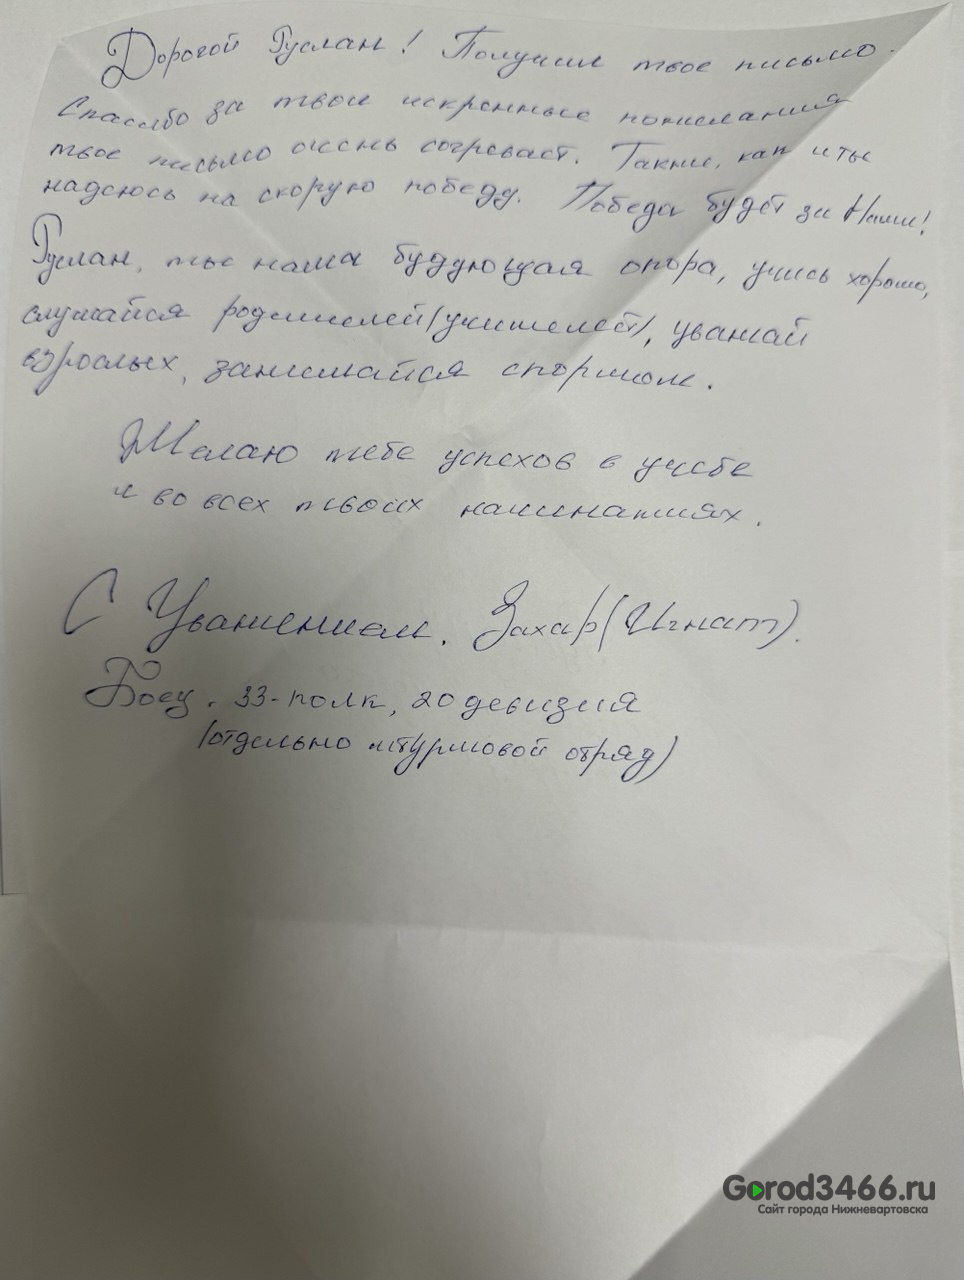 Дорогой Руслан! Получил твое письмо.
Спасибо за твои искренные пожелания
твое письмо очень согревает. Также, как и ты
надеюсь на скорую победу. Победа будет за Нами!
Руслан, ты нама буддующая опора, учись хорошо,
слушайся родителей/учителей/, уважай
взрослых, занимайся спортом.
Желаю тебе успехов в учебе
и во всех твоих начинаниях.
С Уважением. Захар (Игнат).
Боец. 33-полк, 20 девизия
(отдельно штурмовой отряд)
Gorod3466.ru
Сайт города Нижневартовска